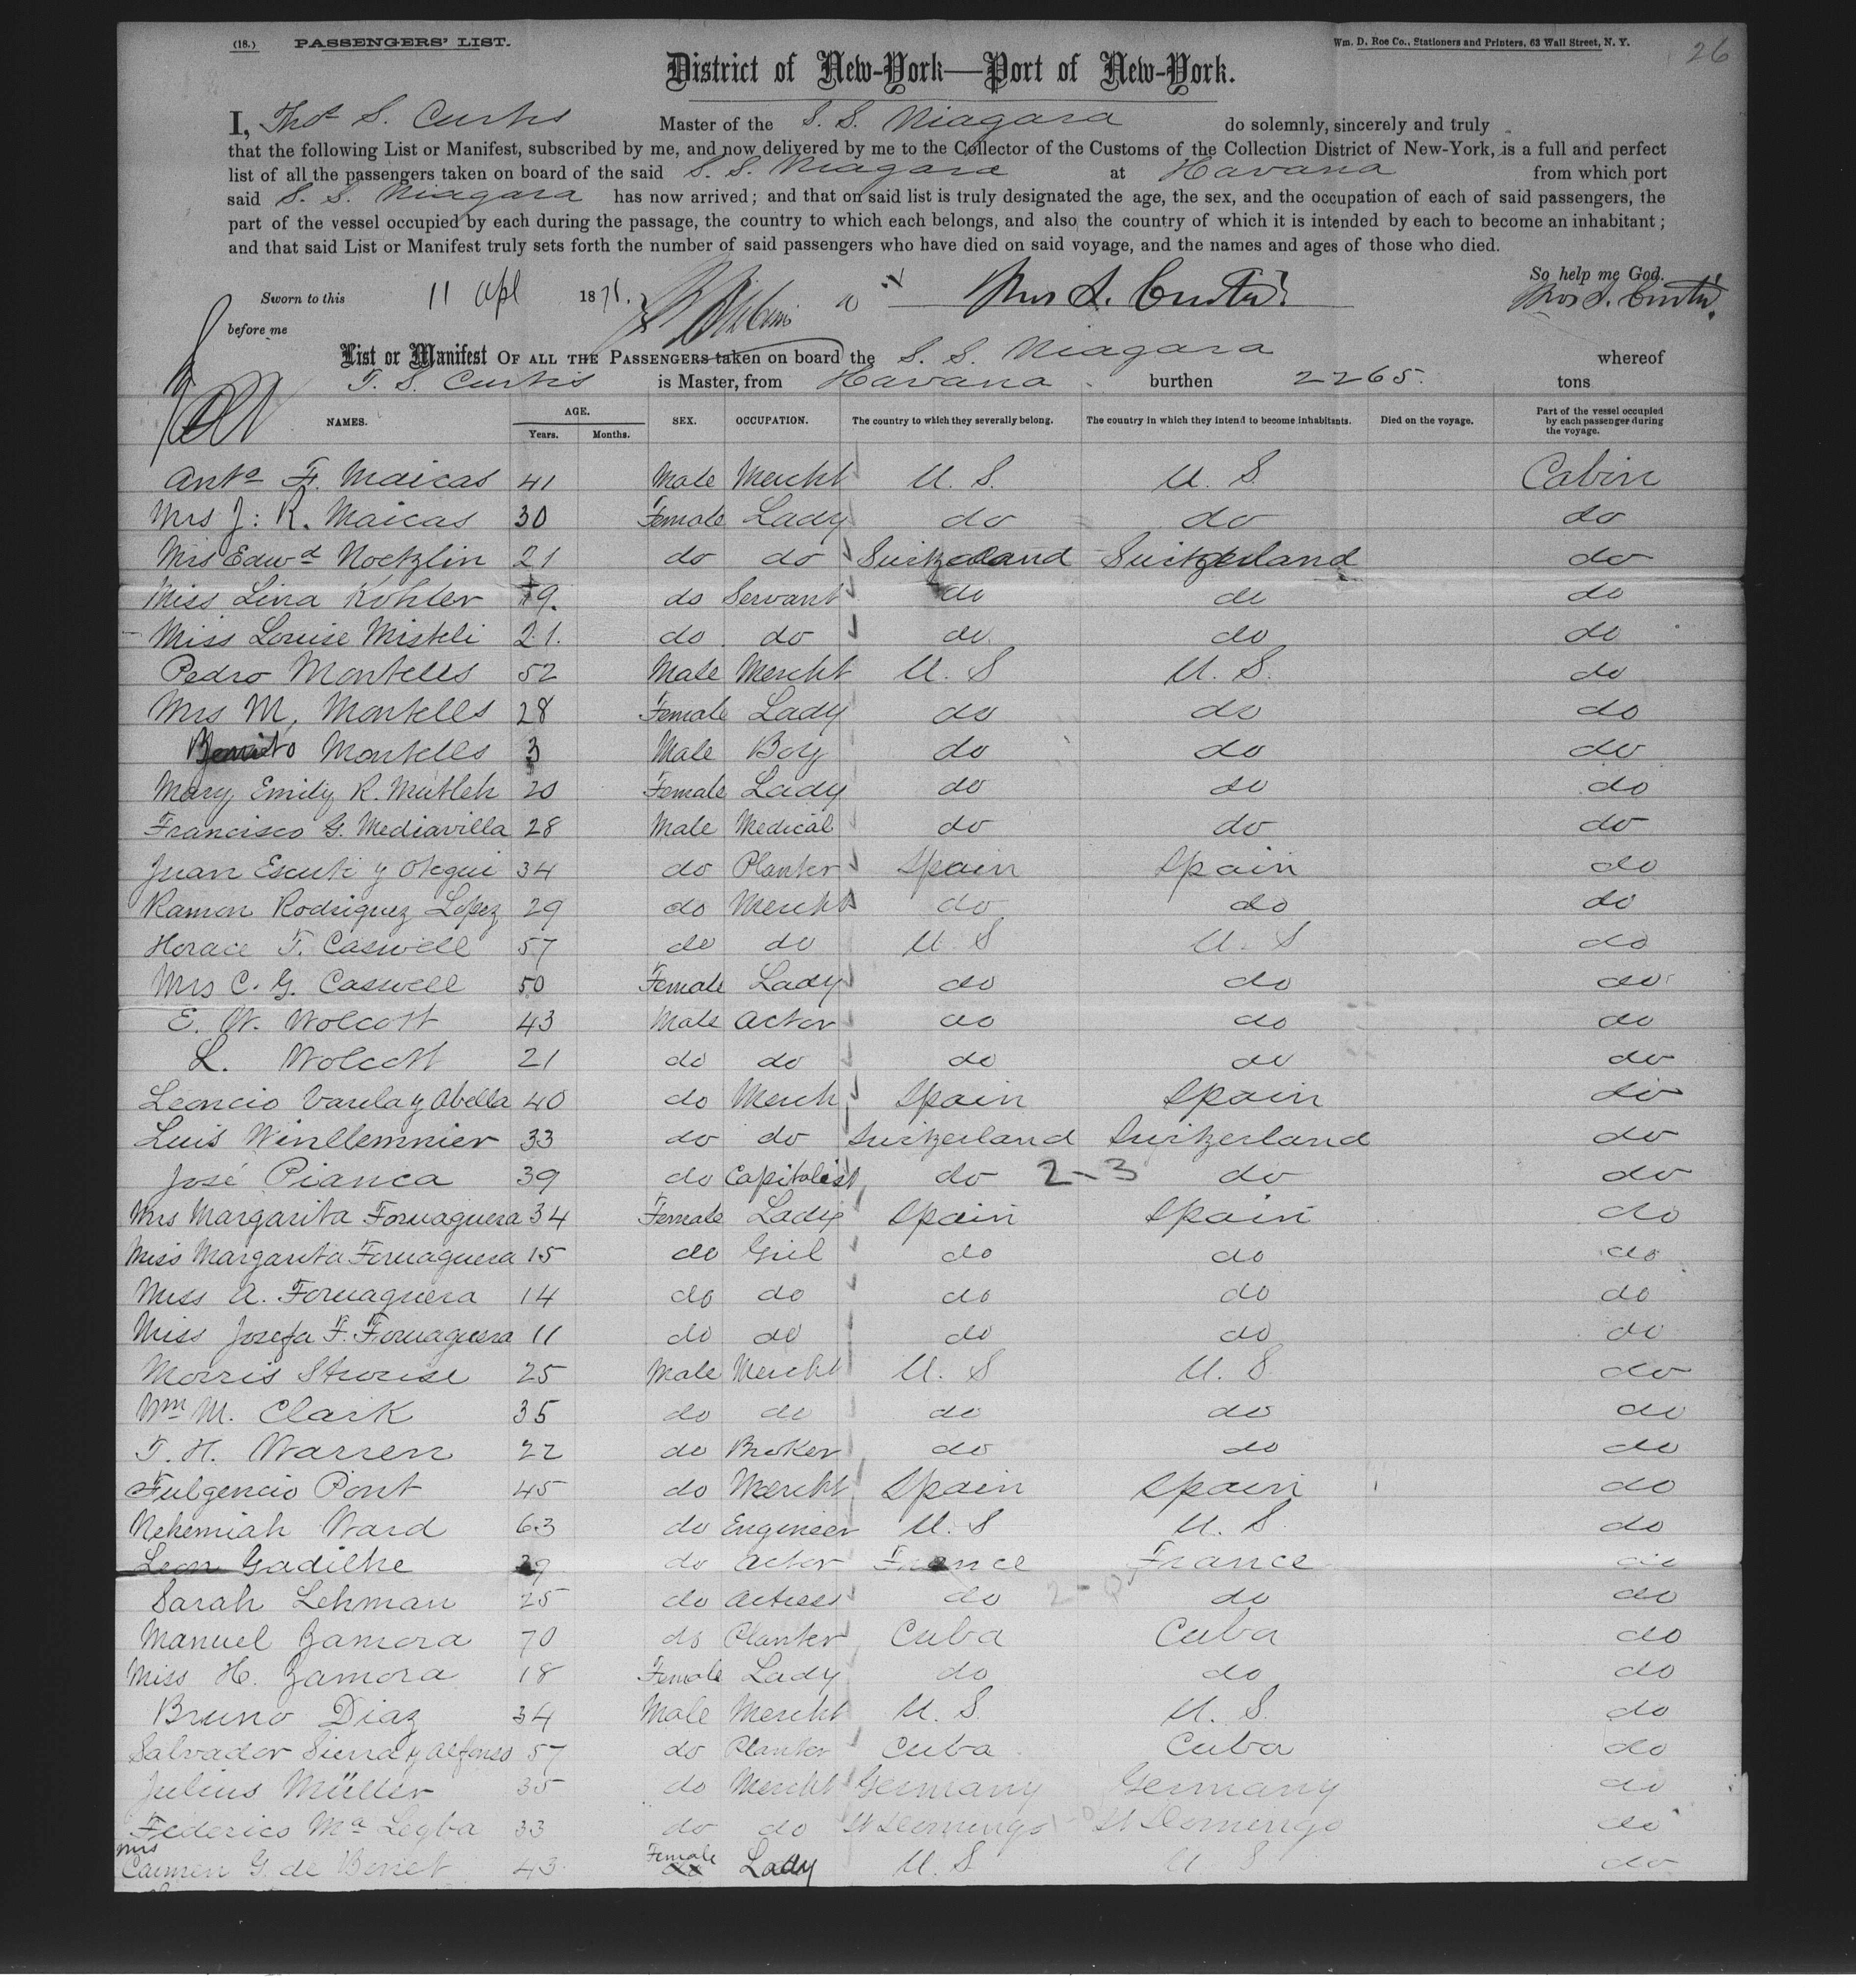 (18.) PASSENGERS' LIST. Wm. D. Roe Co., Stationers and Printers, 63 Wall Street, N. Y. 26
District of New-York—Port of New-York.
I, Thos S. Curtis Master of the S. S. Niagara do solemnly, sincerely and truly
that the following List or Manifest, subscribed by me, and now delivered by me to the Collector of the Customs of the Collection District of New-York, is a full and perfect
list of all the passengers taken on board of the said S. S. Niagara at Havana from which port
said S. S. Niagara has now arrived; and that on said list is truly designated the age, the sex, and the occupation of each of said passengers, the
part of the vessel occupied by each during the passage, the country to which each belongs, and also the country of which it is intended by each to become an inhabitant;
and that said List or Manifest truly sets forth the number of said passengers who have died on said voyage, and the names and ages of those who died.
So help me God.
Sworn to this 11 Apl 18 Thos S. Curtis Thos S. Curtis
before me
List or Manifest OF ALL THE PASSENGERS taken on board the S. S. Niagara whereof
T. S. Curtis is Master, from Havana burthen 2265 tons
NAMES. AGE. Years. Months. SEX. OCCUPATION. The country to which they severally belong. The country in which they intend to become inhabitants. Died on the voyage. Part of the vessel occupied by each passenger during the voyage.
Anto F. Maicas 41 Male Mercht U. S. U. S. Cabin
Mrs J. R. Maicas 30 Female Lady do do do
Mrs Edwd Noetzlin 21 do do Switzerland Switzerland do
Miss Lina Kohler 19. do Servant do do do
Miss Louise Misteli 21. do do do do do
Pedro Montells 52 Male Mercht U. S U. S. do
Mrs M. Montells 28 Female Lady do do do
Benito Montells 3 Male Boy do do do
Mary Emily R. 20 Female Lady do do do
Francisco G. Mediavilla 28 Male Medical do do do
Juan Escuti y Otegui 34 do Planter Spain Spain do
Ramon Rodriguez Lopez 29 do Mercht do do do
Horace T. Caswell 57 do do U. S U. S do
Mrs C. G. Caswell 50 Female Lady do do do
E. W. Wolcott 43 Male Actor do do do
L. Wolcott 21 do do do do do
Leoncio Varela y Abella 40 do Merch Spain Spain do
Luis 33 do do Switzerland Switzerland do
José Pianca 39 do Capitalist do 2-3 do do
Mrs Margarita Fornaguera 34 Female Lady Spain Spain do
Miss Margarita Fornaguera 15 do Girl do do do
Miss A. Fornaguera 14 do do do do do
Miss Josefa F. Fornaguera 11 do do do do do
Morris Strouse 25 Male Mercht U. S U. S do
Wm M. Clark 35 do do do do do
T. H. Warren 22 do Broker do do do
Fulgencio Pont 45 do Mercht Spain Spain do
Nehemiah Ward 63 do Engineer U. S U. S do
Leon Gadilhe 29 do Actor France France do
Sarah Lehman 25 do Actress do do do
Manuel Zamora 70 do Planter Cuba Cuba do
Miss H. Zamora 18 Female Lady do do do
Bruno Diaz 34 Male Mercht U. S. U. S. do
Salvador Sierra y Alfonso 57 do Planter Cuba Cuba do
Julius Müller 35 do Mercht Germany Germany do
Federico Ma Leyba 33 do do St Domingo St Domingo do
Mrs Carmen G. de Benet 43 Female do Lady U. S. U S do